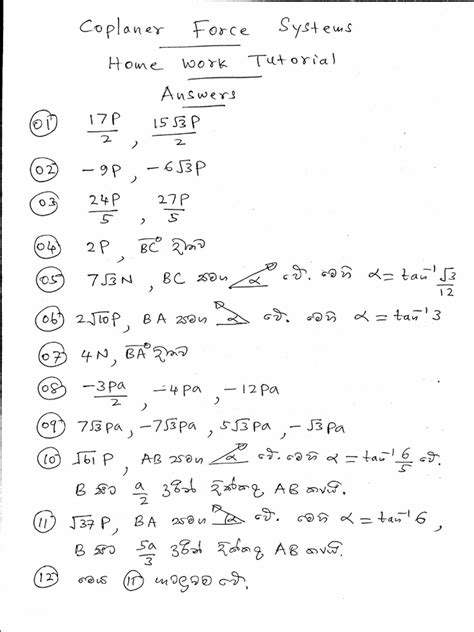 Coplaner Force Systems
Home Work Tutorial
Answers
01 17P/2 , 15√3P/2
02 -9P , -6√3P
03 24P/5 , 27P/5
04 2P , BC දිශාව
05 7√3 N , BC සමග α වේ. මෙහි α = tan⁻¹ √3/12
06 2√10 P , BA සමග α වේ. මෙහි α = tan⁻¹ 3
07 4N , BA දිශාව
08 -3Pa/2 , -4Pa , -12Pa
09 7√3Pa , -7√3Pa , 5√3Pa , -√3Pa
10 √61 P , AB සමග α වේ. මෙහි α = tan⁻¹ 6/5 වේ.
B සිට a/2 දුරින් දික්කල AB කපයි.
11 √37 P , BA සමග α වේ. මෙහි α = tan⁻¹ 6 ,
B සිට 5a/3 දුරින් දික්කල AB කපයි.
12 මෙය 11 වේ.